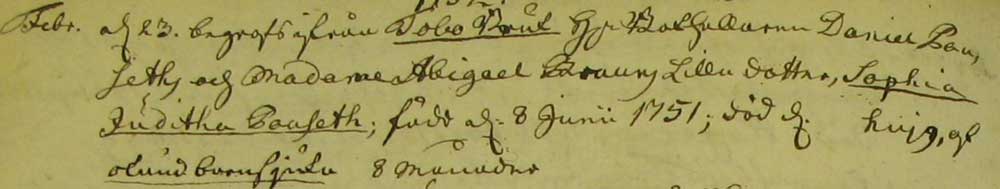 Febr. d. 23. begrofs ifrån Tobo Bruk Hr Bokhållaren Daniel Pau,
seths och Madame Abigael Brauns Lilla dotter, Sophia
Juditha Pauseth; född d. 8 Junii 1751; död d. hujs, af
okänd barnsjuka 8 Månader